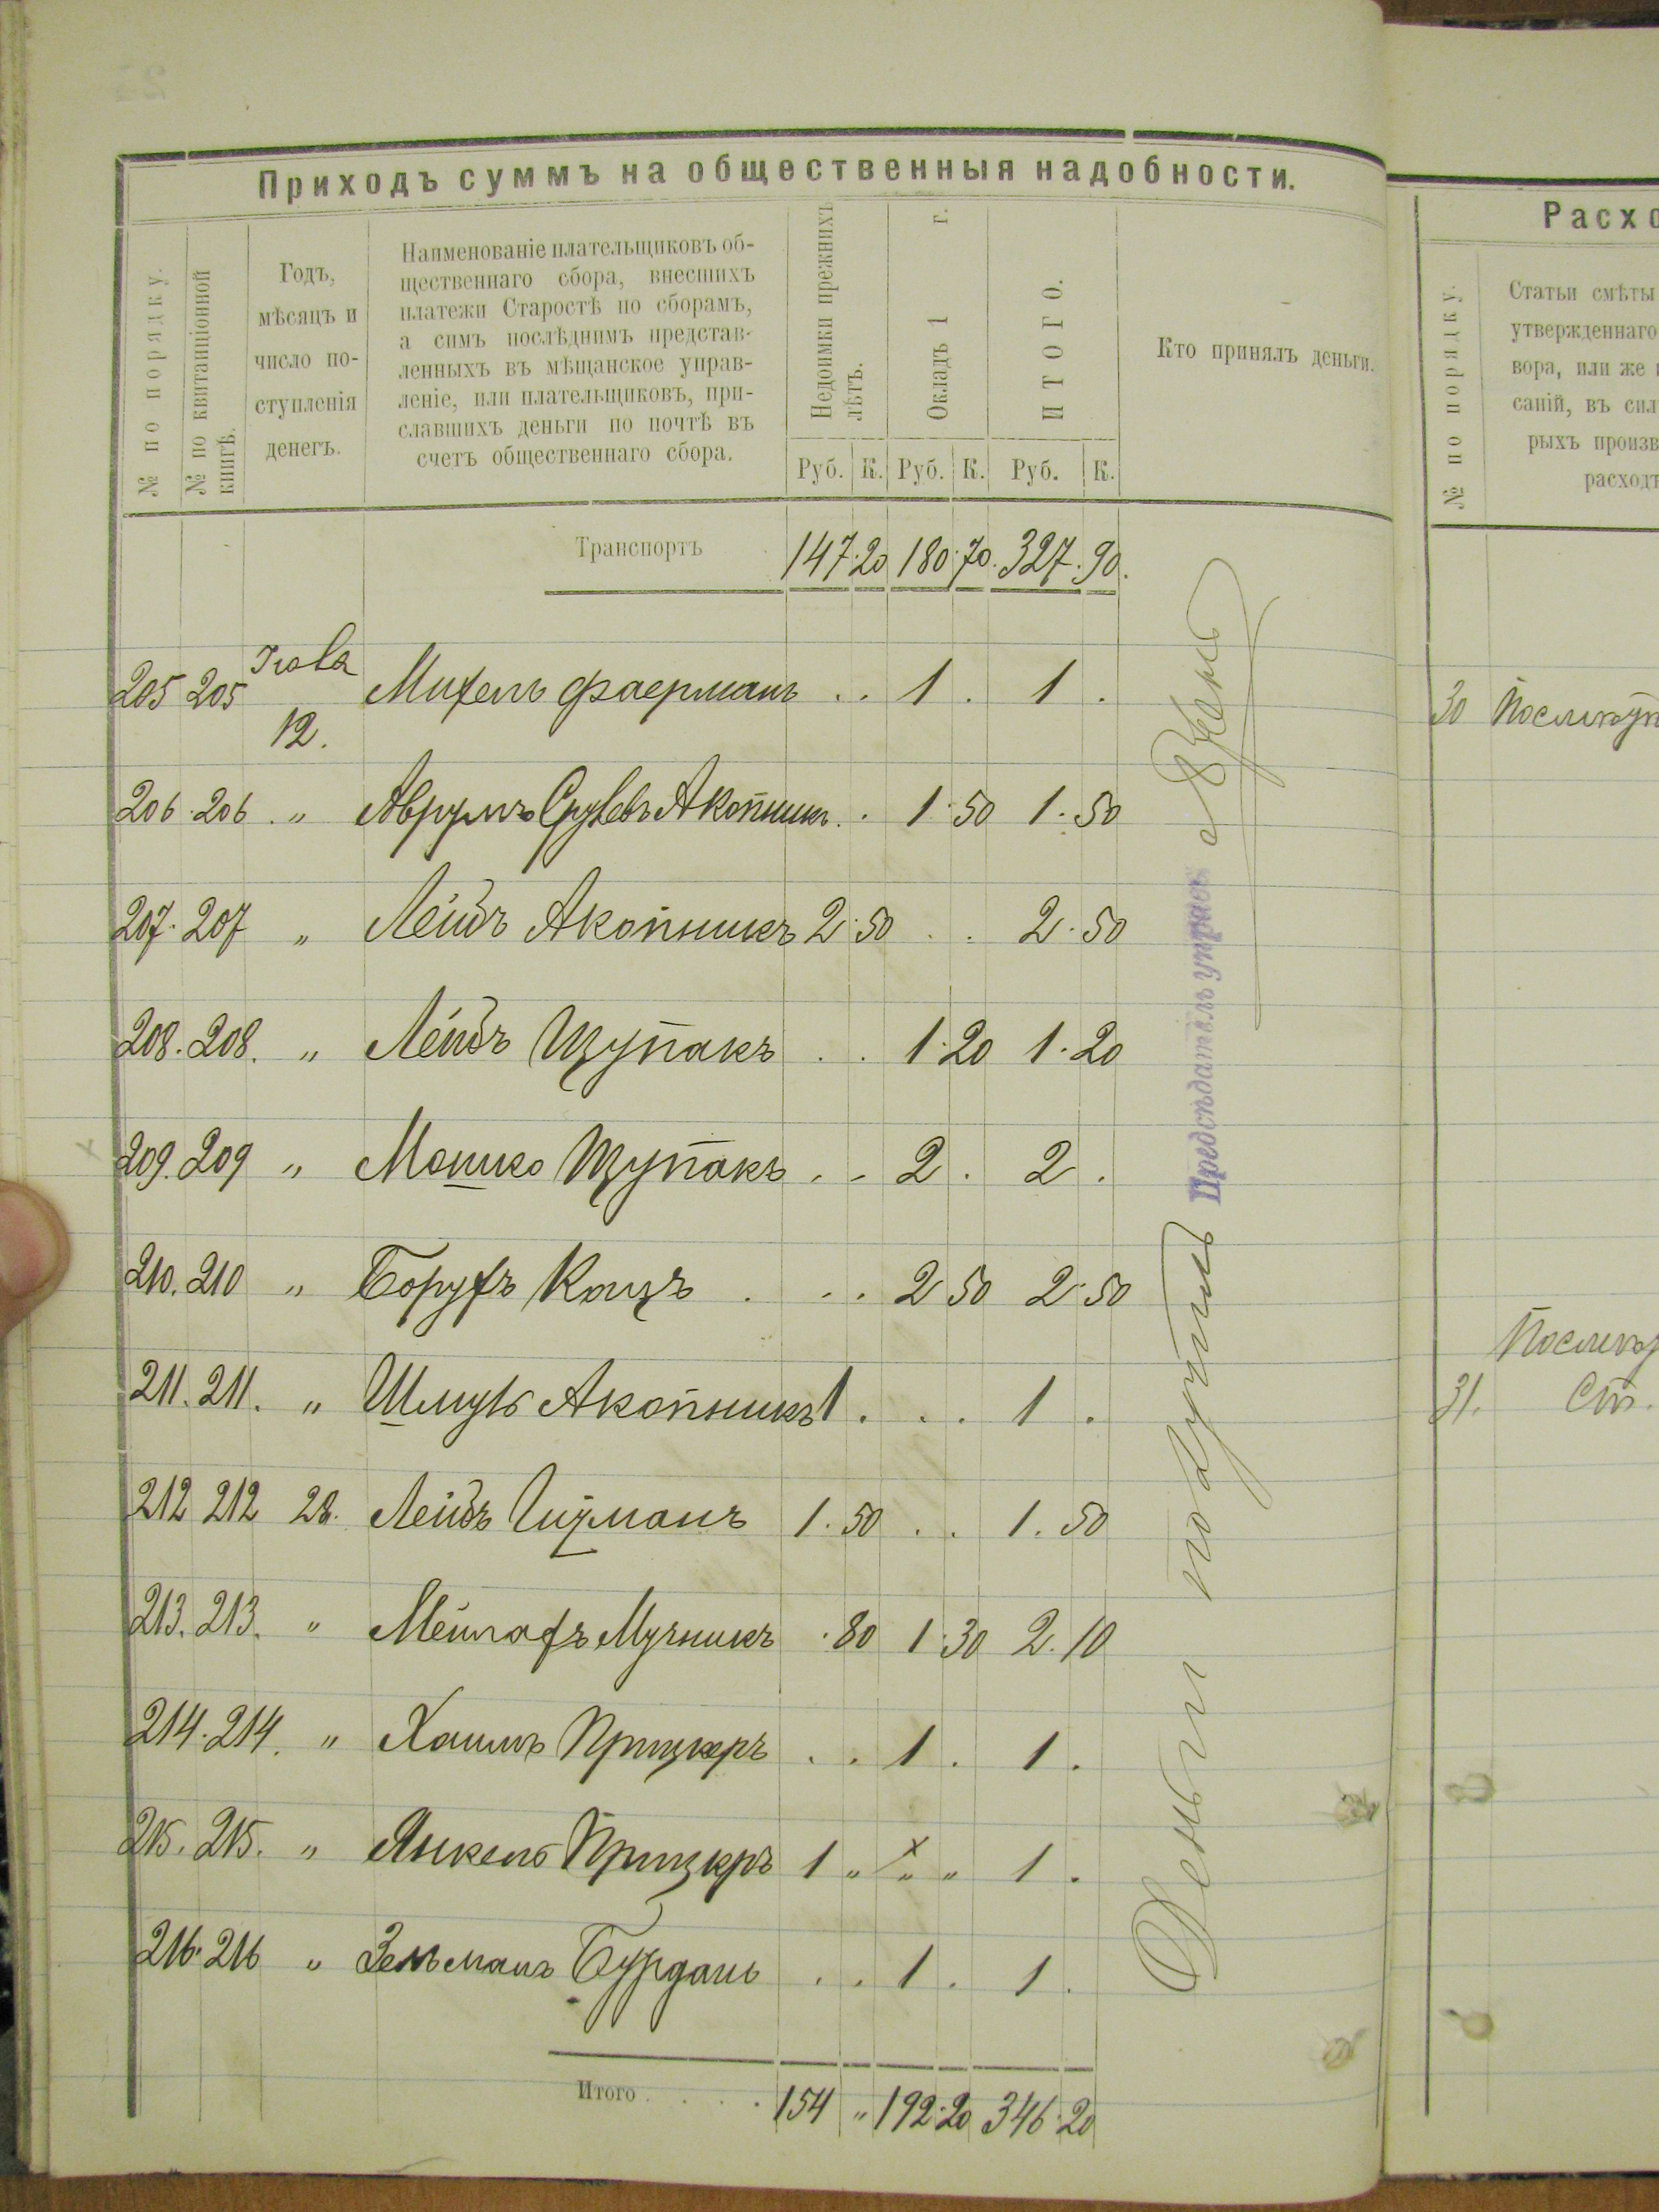 Приходъ суммъ на общественныя надобности.
№ по порядку.
№ по квитанціонной
книгѣ.
Годъ,
мѣсяцъ и
число по-
ступленія
денегъ.
Наименованіе плательщиковъ об-
щественнаго сбора, внесшихъ
платежи Старостѣ по сборамъ,
а симъ послѣднимъ представ-
ленныхъ въ мѣщанское управ-
леніе, или плательщиковъ, при-
славшихъ деньги по почтѣ въ
счетъ общественнаго сбора.
Недоимки прежнихъ
лѣтъ.
Окладъ 1 г.
ИТОГО.
Кто принялъ деньги.
Руб. К. Руб. К. Руб. К.
Транспортъ 147 20 180 70 327 90
205 205 12. Михель Фаерманъ . . 1 . 1 .
206 206 " Аврумъ Акопникъ . . 1 50 1 50
207 207 " Лейбъ Акопникъ 2 50 . . 2 50
208. 208. " Лейбъ Щупакъ . . 1 20 1 20
209. 209 " Мошко Щупакъ . . 2 . 2 .
210. 210 " Борухъ Кацъ . . . 2 50 2 50
211. 211. " Шмуль Акопникъ 1 . . . 1 .
212 212 28. Лейбъ 1. 50 . . 1. 50
213. 213. " Мейлахъ Мучникъ . 80 1 30 2. 10
214. 214. " Хаимъ Прицкеръ . . 1 . 1 .
215. 215. " Янкель Прицкеръ 1 " " " 1 .
216 216 " Зельманъ Бурдань . . 1 . 1 .
Итого . . . . 154 " 192 20 346 20
Деньги получилъ Предсѣдатель управы
Расхо
№ по порядку.
Статьи смѣты
утвержденнаго
вора, или же
саній, въ сил
рыхъ произв
расходъ
30
31. Ст.